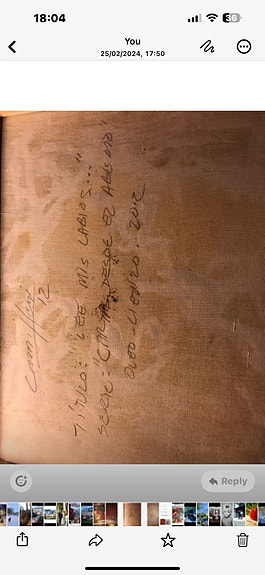 18:04
36
You
25/02/2024, 17:50
12
TÍTULO: "LEE MIS LABIOS..."
SERIE: "CARTAS DESDE EL ABISMO"
OLEO-LIENZO. 2012
Reply